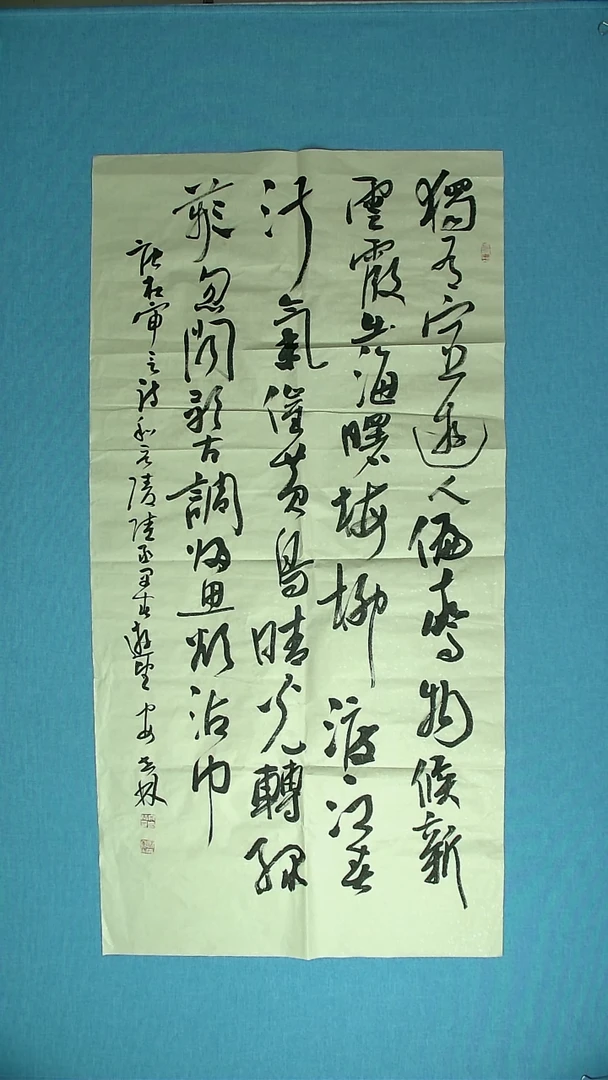 獨有宦遊人偏驚物候新
雲霞出海曙梅柳渡江春
淑氣催黄鳥晴光轉綠
蘋忽聞歌古調歸思欲沾巾
唐杜審言詩和晉陵陸丞早春遊望